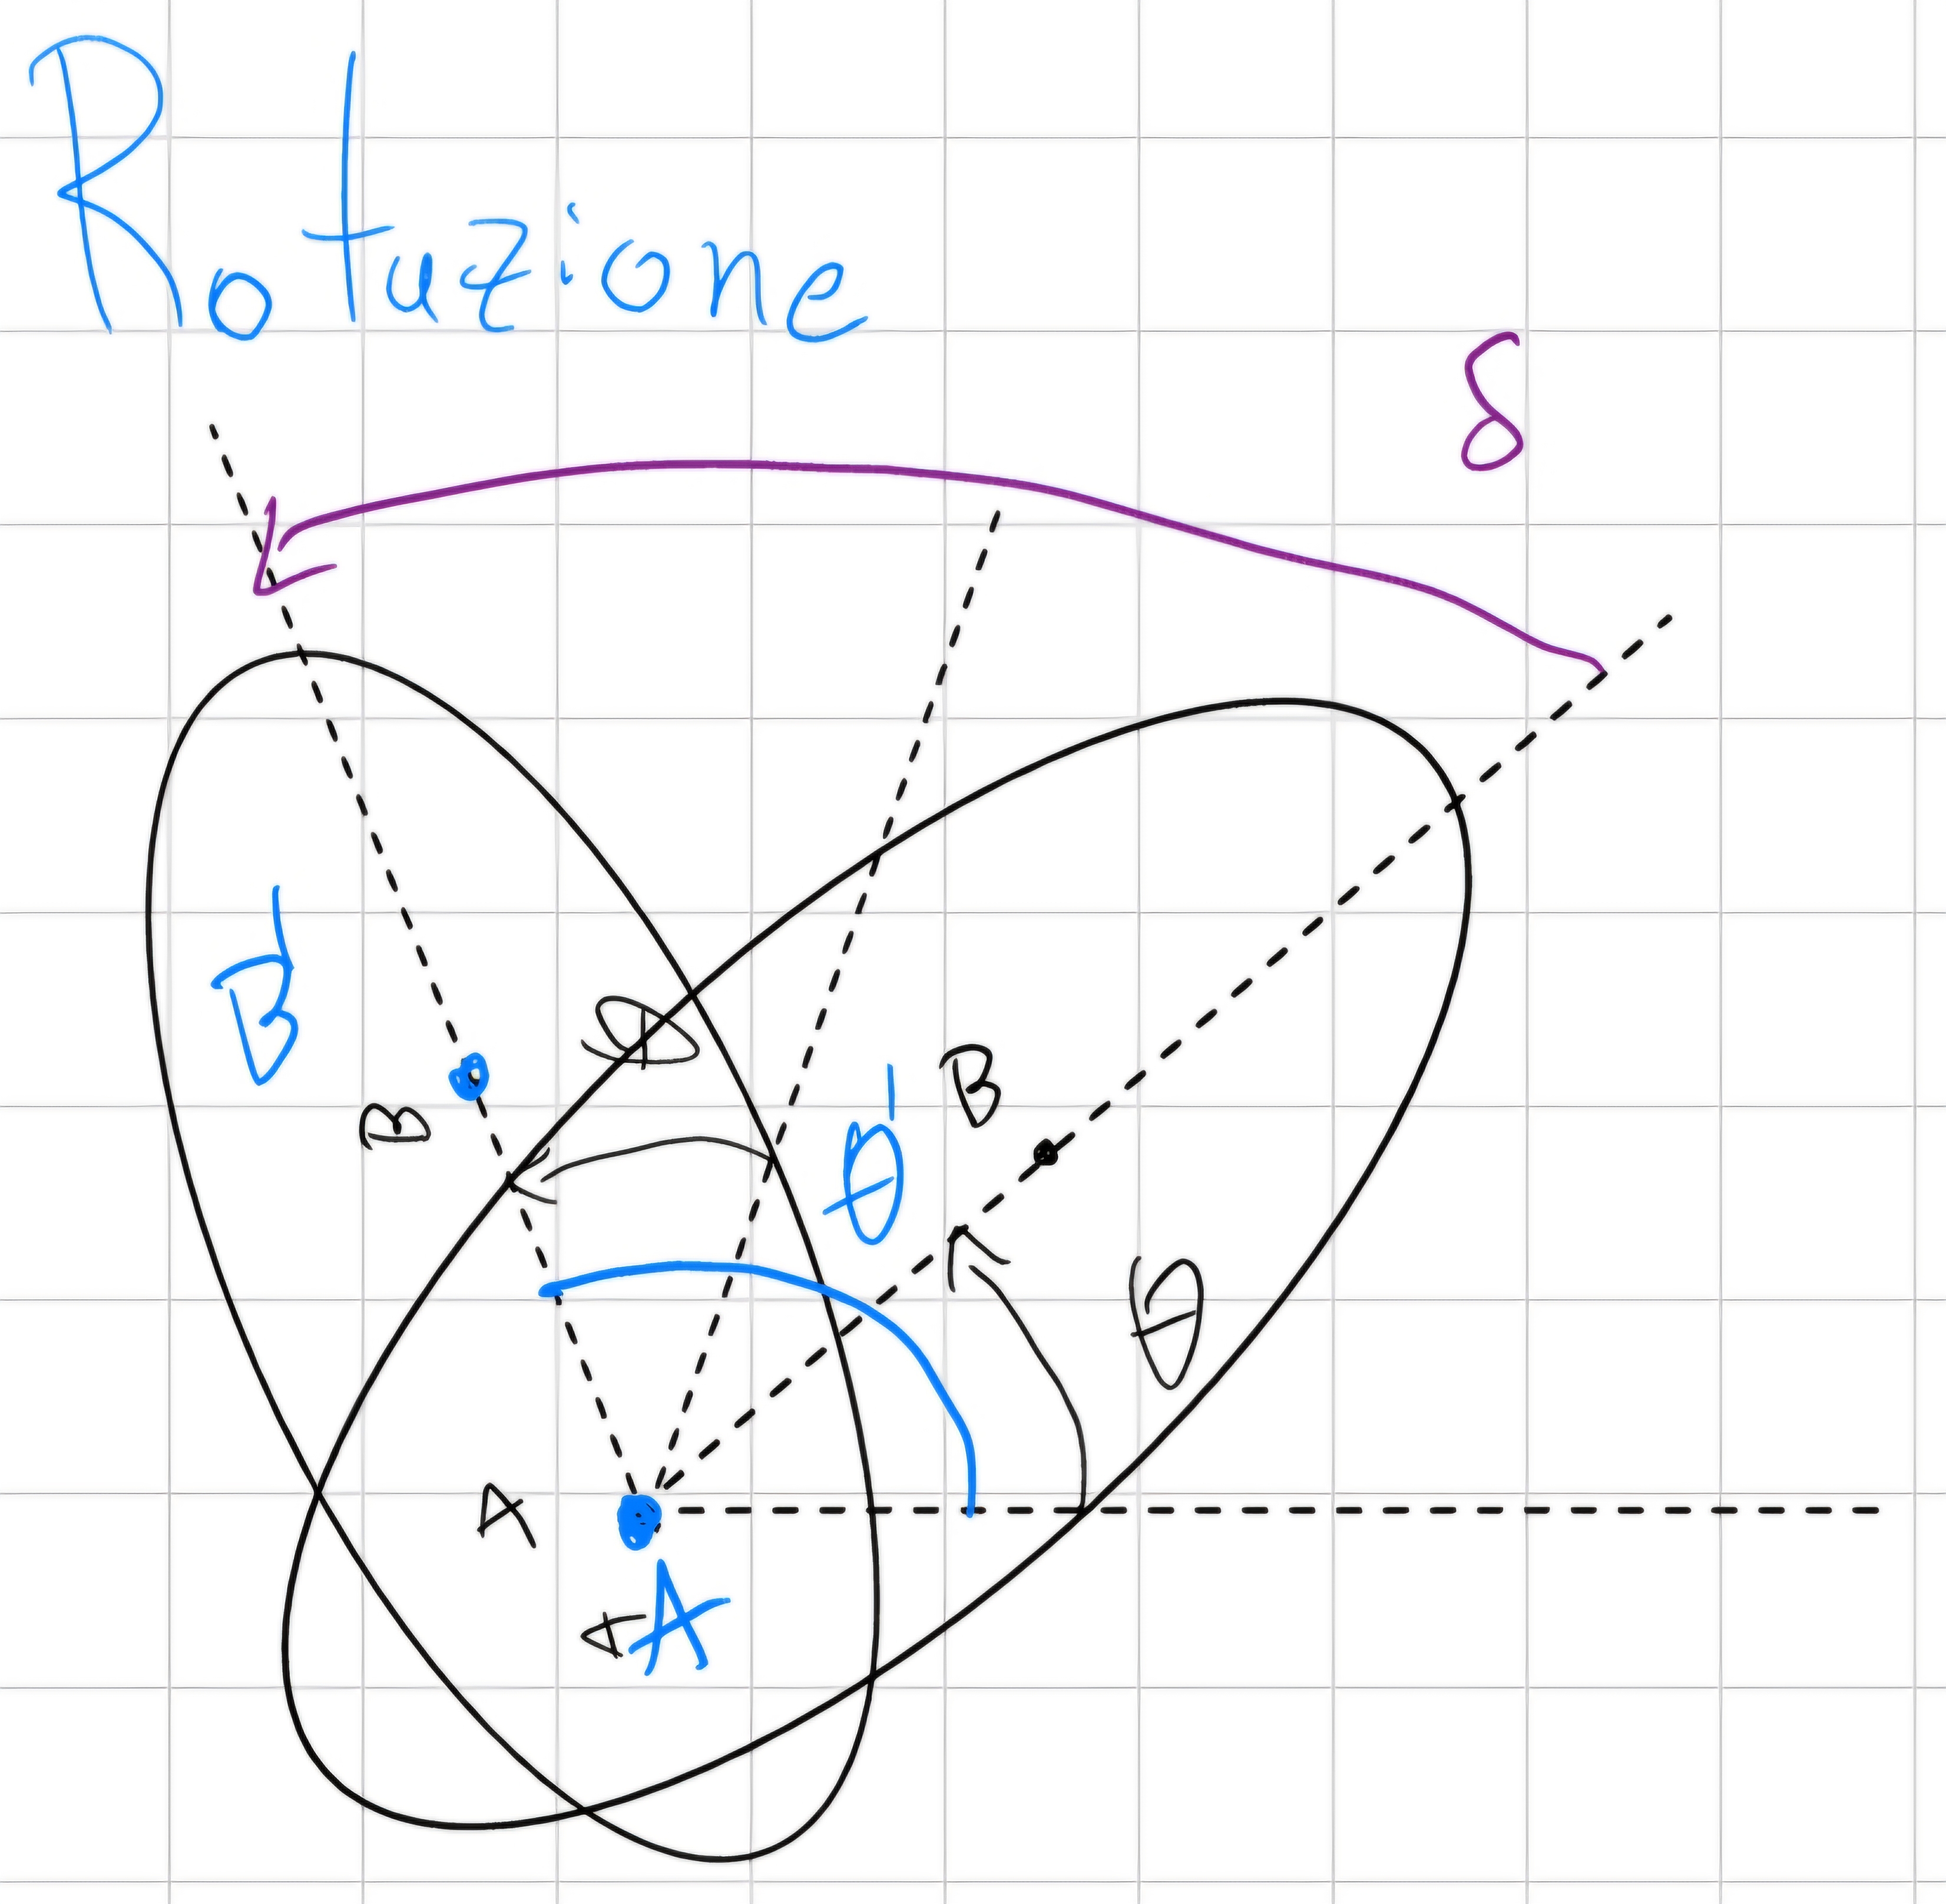 Rotazione
δ
B'
θ
B
θ'
B
θ
A
A
A